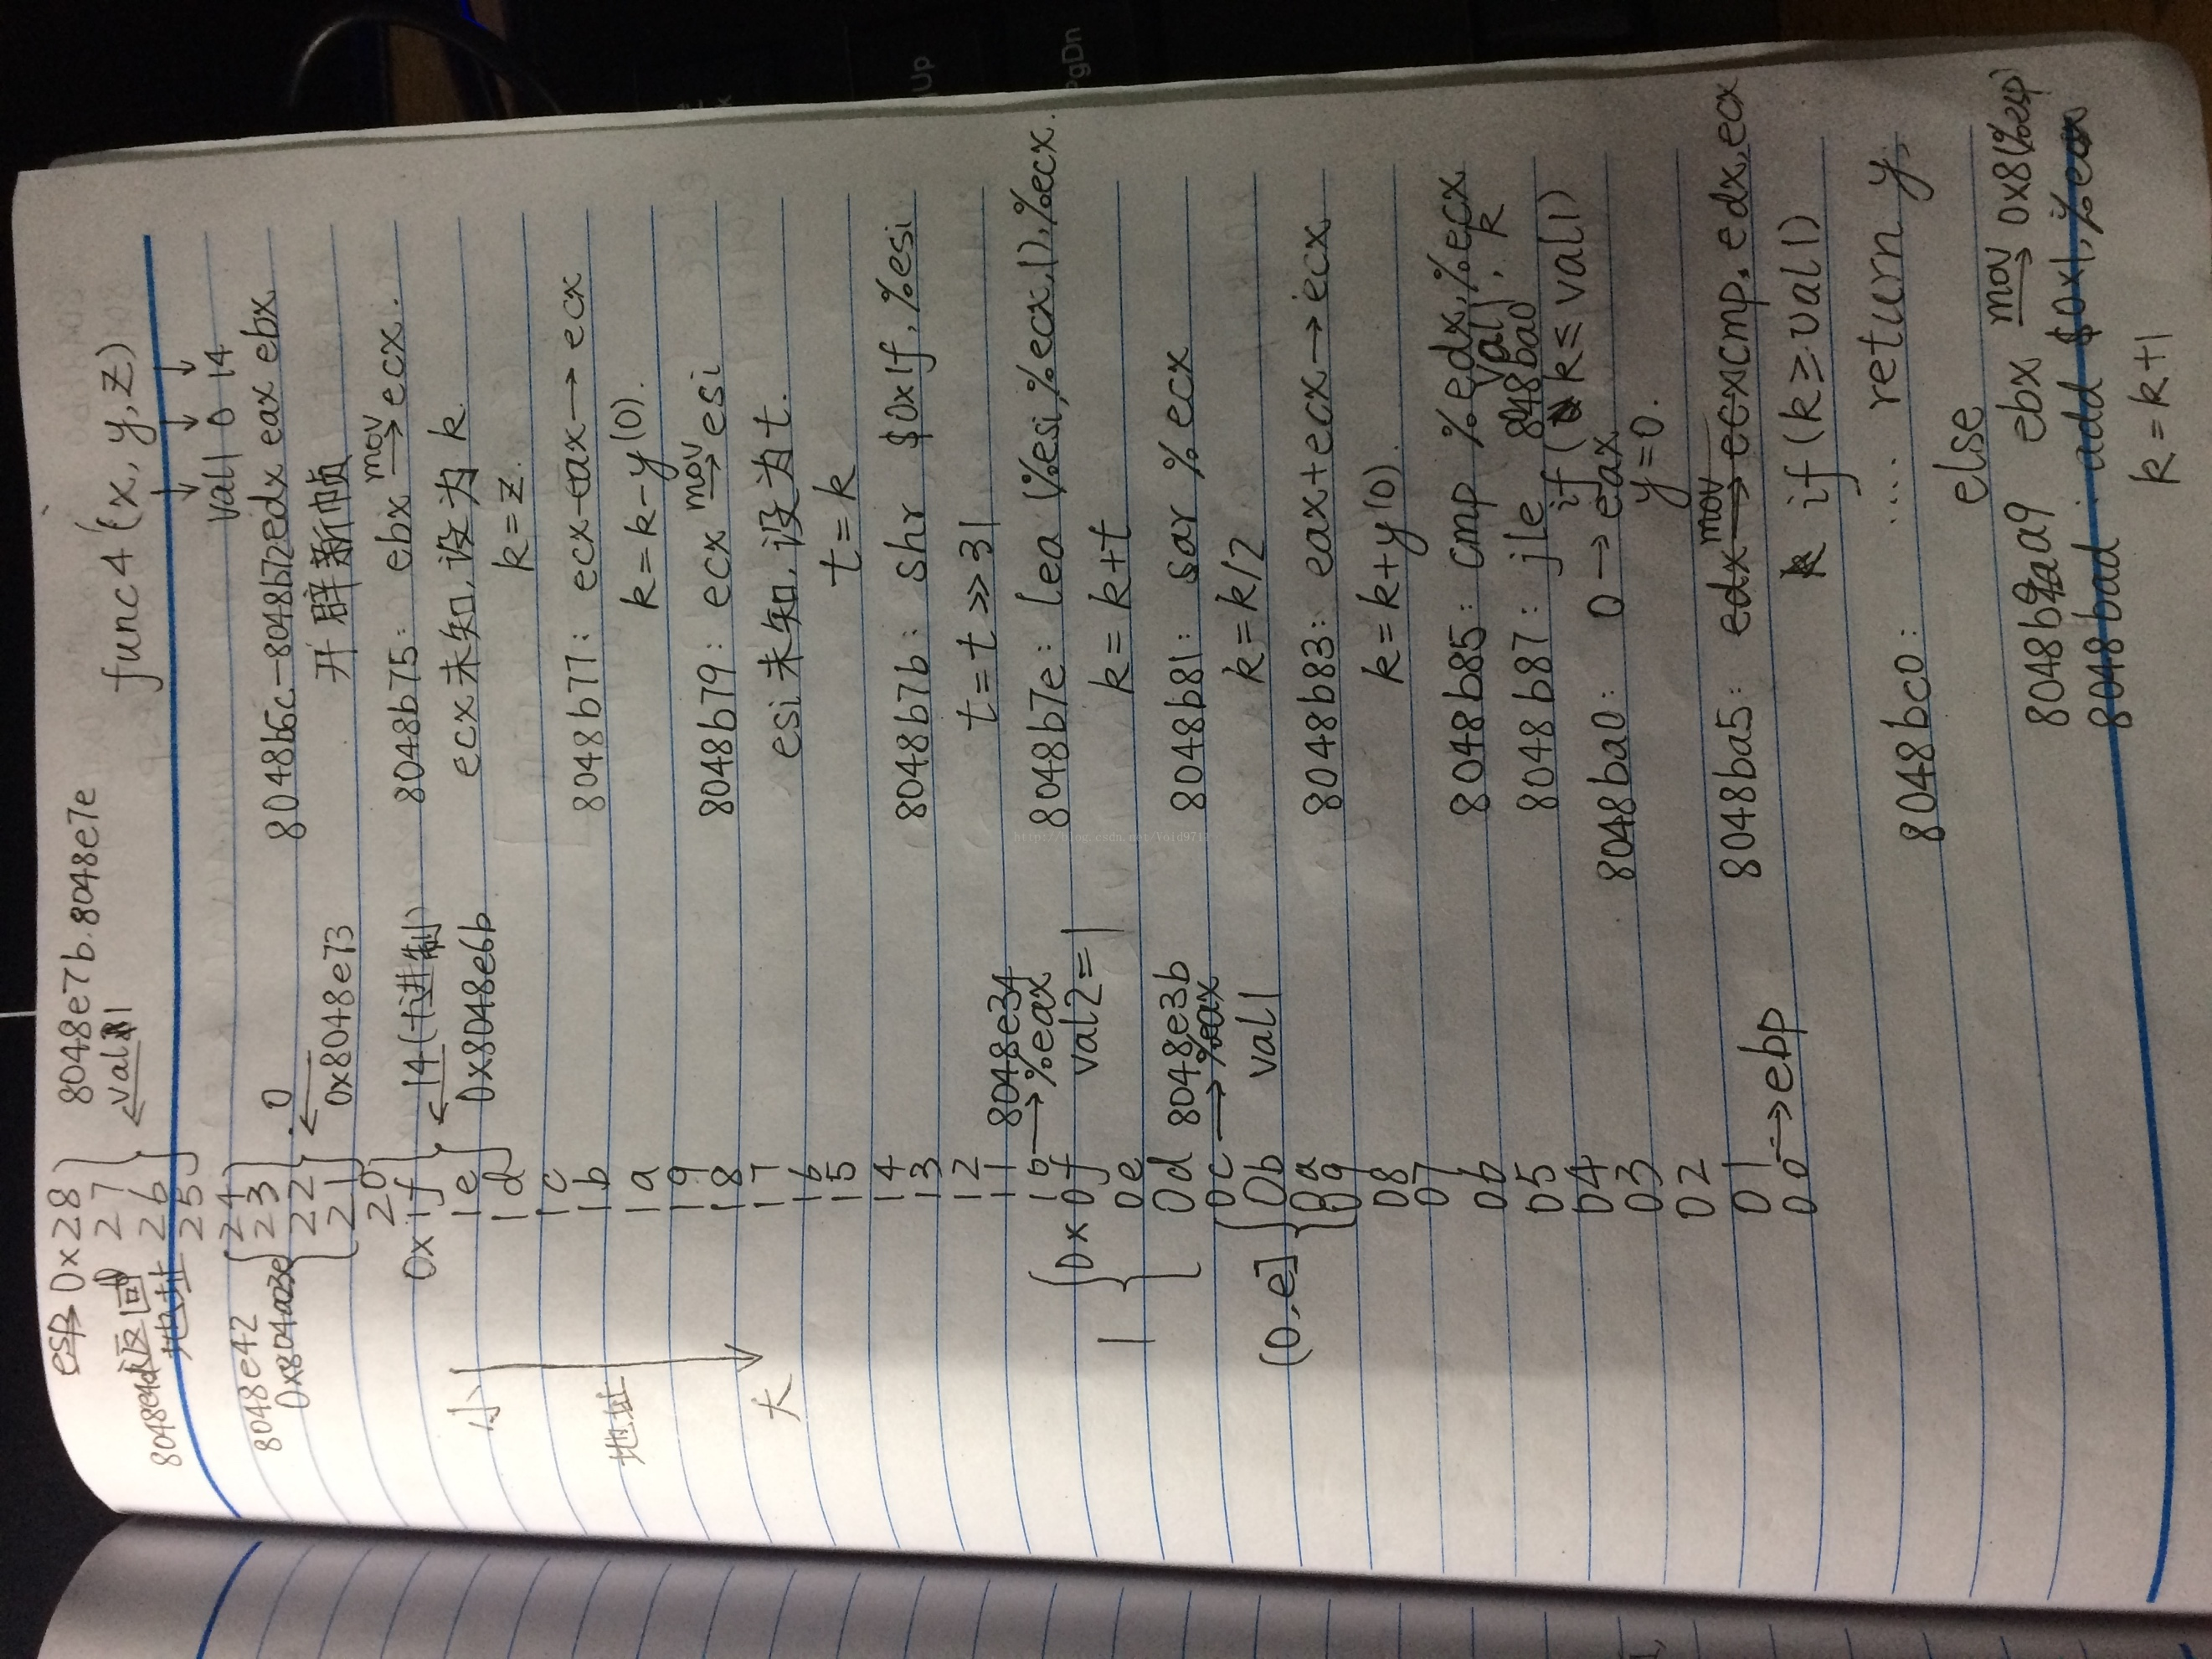 esp 0x28 8048e7b.8048e7e
返回 27 ← val1
地址 26
25
8048e42 24
0x804a23e 23 0
22 ←
21 0x8048e73
20
0x1f ← 14(十进制)
1e 0x8048e6b
1d
小
1c
1b
1a
地址
19
18
17
大
16
15
14
13
12
11 8048e34
10 → %eax
0x0f val2=1
0e
1
0d 8048e3b
0c → %eax
0b val1
(0,e]
0a
09
08
07
06
05
04
03
02
01
00 → ebp
func4 (x, y, z)
↓ ↓ ↓
val1 0 14
8048b6c—8048b72 edx eax ebx.
开辟新帧
8048b75: ebx mov→ ecx.
ecx未知,设为k.
k=z.
8048b77: ecx-eax→ecx
k=k-y(0).
8048b79: ecx mov→ esi
esi未知,设为t.
t=k
8048b7b: shr $0x1f,%esi
t=t>>31
8048b7e: lea (%esi,%ecx,1),%ecx.
k=k+t
8048b81: sar %ecx
k=k/2
8048b83: eax+ecx→ecx
k=k+y(0).
8048b85: cmp %edx,%ecx
val1, k
8048b87: jle 848ba0
if (k≤val1)
8048ba0: 0→eax
y=0.
8048ba5: edx mov→ ecx cmp. edx,ecx
if (k≥val1)
8048bc0: .... return y,
else
8048ba9 ebx mov→ 0x8(%esp)
8048bad: add $0x1,%ecx
k=k+1